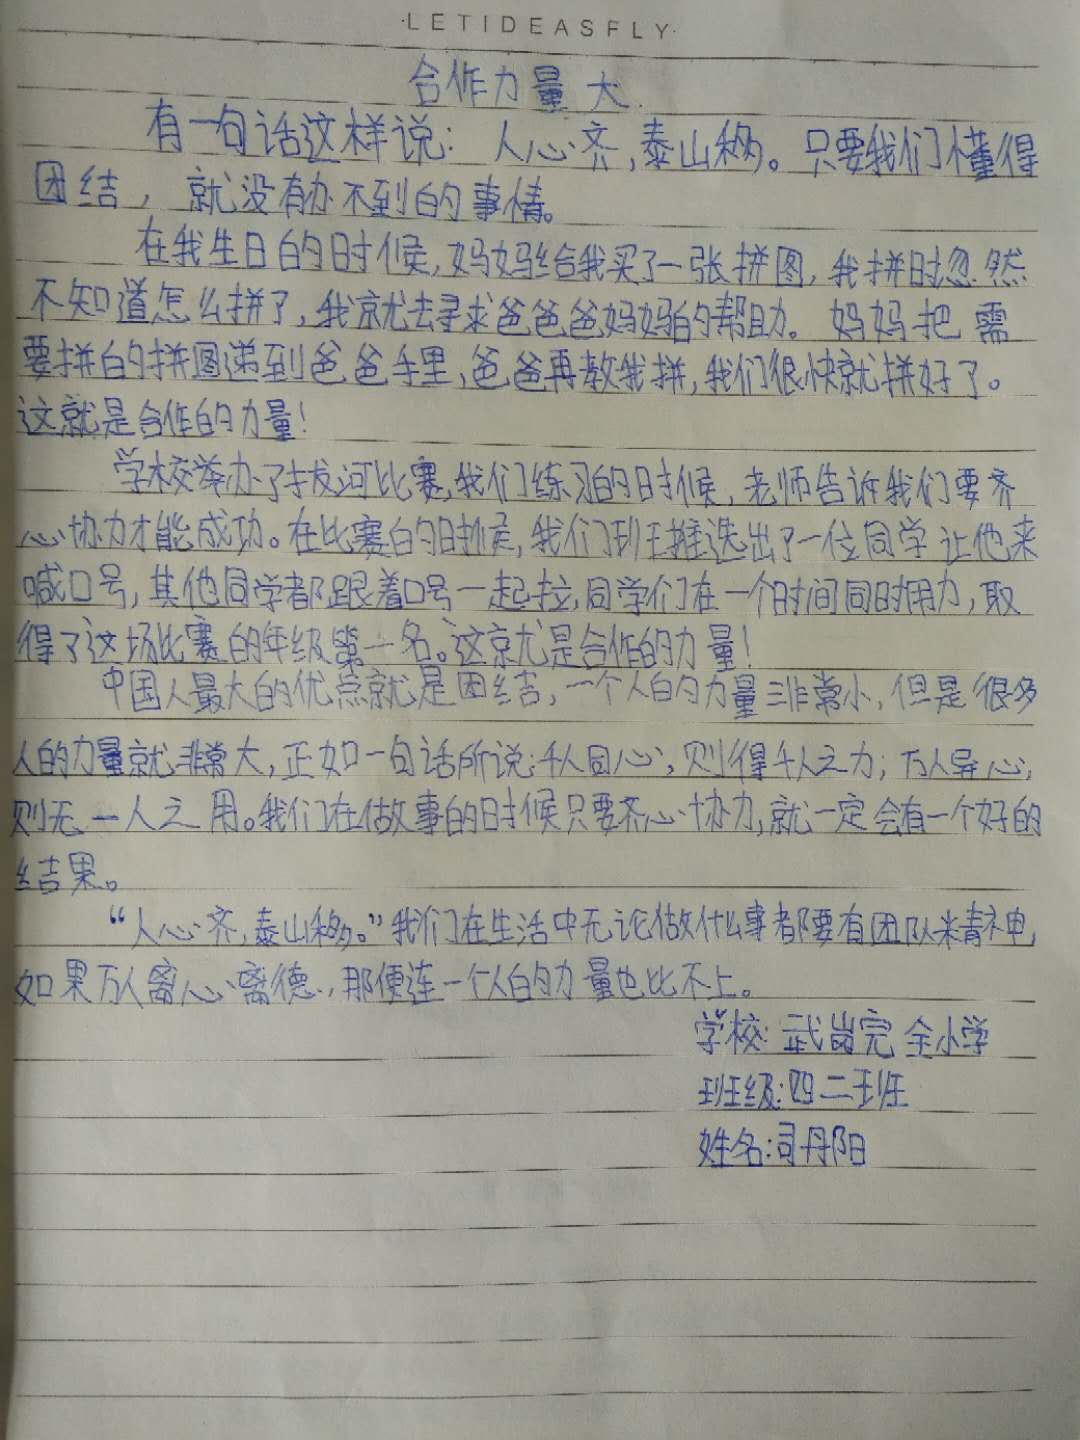 ·LETIDEASFLY·
合作力量大
有一句话这样说：人心齐，泰山移。只要我们懂得
团结，就没有办不到的事情。
在我生日的时候，妈妈给我买了一张拼图，我拼时忽然
不知道怎么拼了，我就去寻求爸爸爸妈妈的帮助。妈妈把需
要拼的拼图递到爸爸手里，爸爸再教我拼，我们很快就拼好了。
这就是合作的力量！
学校举办了拔河比赛，我们练习的时候，老师告诉我们要齐
心协力才能成功。在比赛的时候，我们班推选出了一位同学让他来
喊口号，其他同学都跟着口号一起拉，同学们在一个时间同时用力，取
得了这场比赛的年级第一名。这就是合作的力量！
中国人最大的优点就是团结，一个人的力量非常小，但是很多
人的力量就非常大，正如一句话所说：千人同心，则得千人之力；万人异心，
则无一人之用。我们在做事的时候只要齐心协力，就一定会有一个好的
结果。
“人心齐，泰山移。”我们在生活中无论做什么事都要有团队精神，
如果万人离心离德，那便连一个人的力量也比不上。
学校：武岗完全小学
班级：四二班
姓名：司丹阳